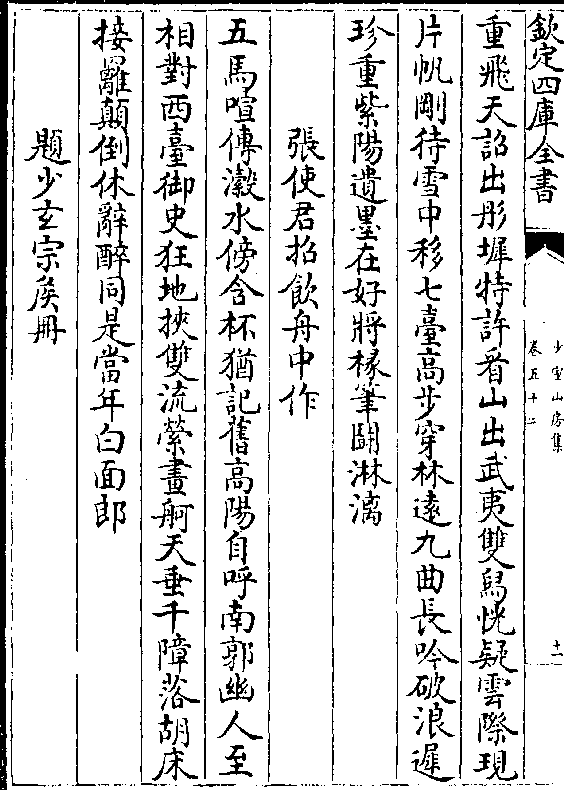 欽定四庫全書
少室山房集
卷五十二
十一
重飛天詔出彤墀特許看山出武夷雙舄恍疑雲際現
片帆剛待雪中移七臺高步穿林遠九曲長吟破浪遲
珍重紫陽遺墨在好將椽筆鬭淋漓
張使君招飲舟中作
五馬喧傳瀫水傍含杯猶記舊高陽自呼南郭幽人至
相對西臺御史狂地挾雙流縈畫舸天垂千障落胡床
接䍦顛倒休辭醉同是當年白面郎
題少玄宗侯冊